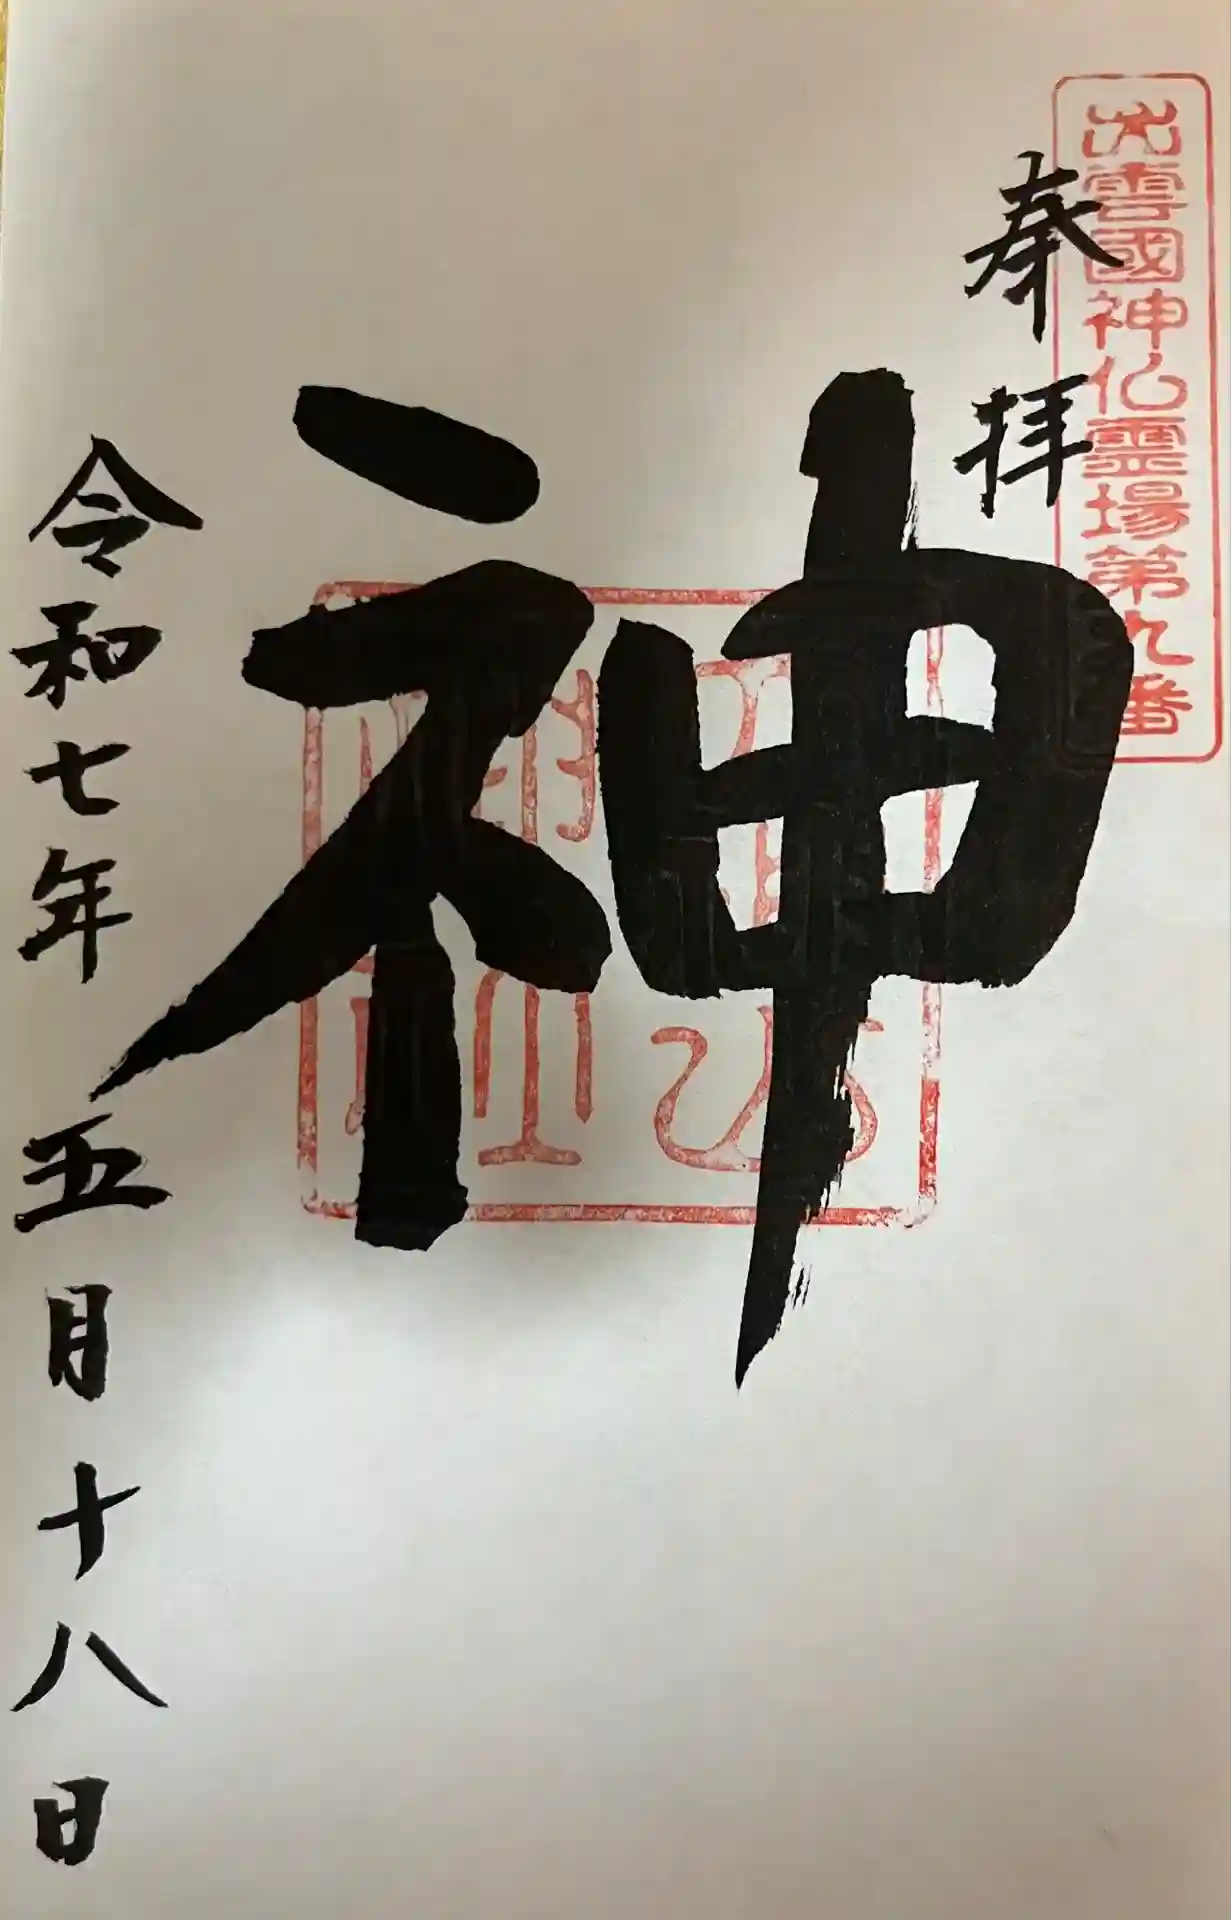 出雲國神仏霊場第九番
奉拝
神
令和七年五月十八日